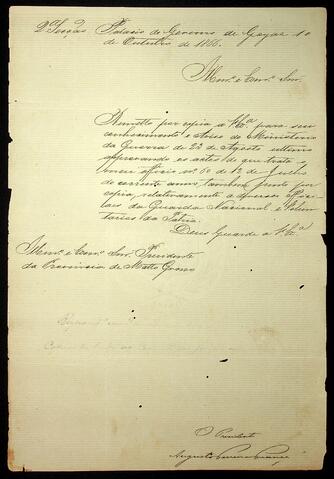 2ª Secção Palacio do Governo de Goyaz 10
de Outubro de 1866.
Illm.º e Exm.º Snr.
Remetto por copia a V. Exª. para seu
conhecimento o Aviso do Ministerio
da Guerra de 22 de Agosto ultimo
approvando os actos de que trata o
meu officio nº 60 de 12 de Julho
do corrente anno, tambem junto por
copia, relativamente a diversos
da Guarda Nacional e Volun-
tarios da Patria.
Deus Guarde a V. Exª
Illm.º e Exm.º Snr. Presidente
da Provincia de Matto Grosso
O Presidente
Augusto Ferreira França